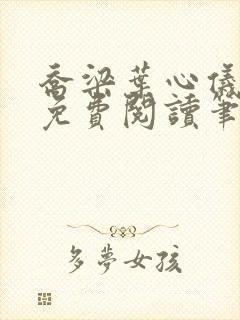 喬梁葉心儀
免費閱讀筆
多夢女孩